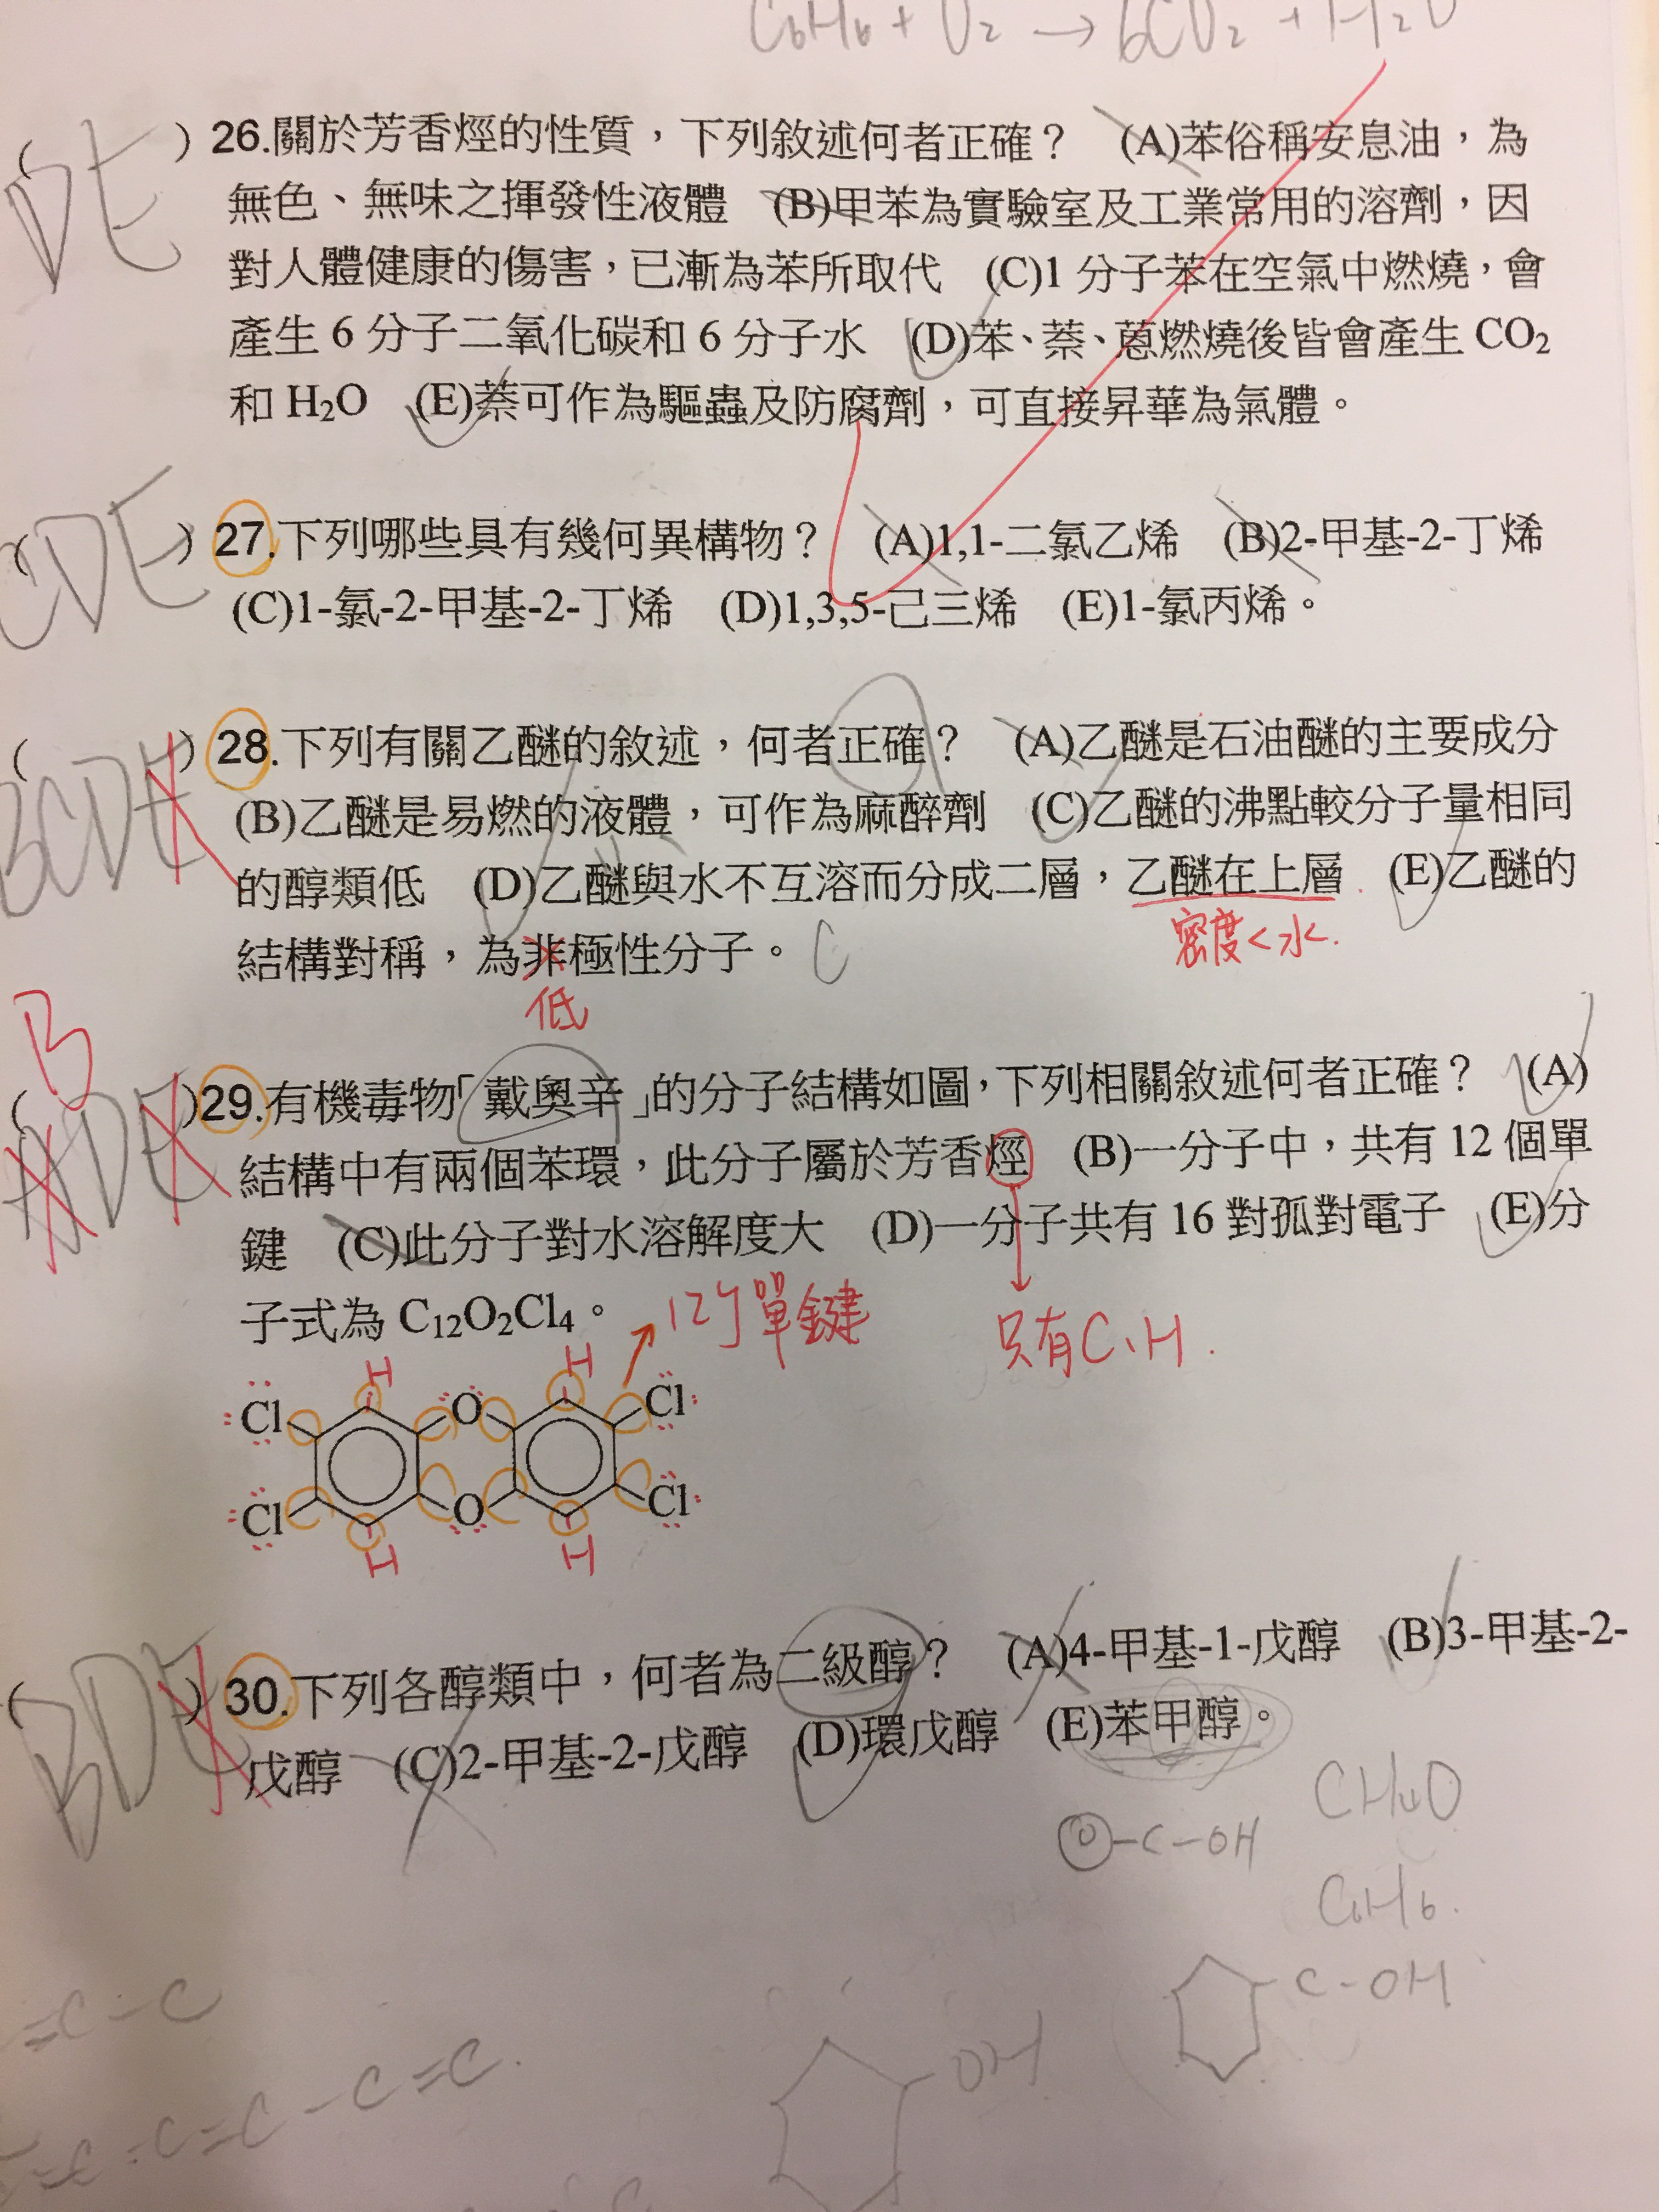 C6H6 + O2 → 6CO2 + H2O
( DE ) 26.關於芳香烴的性質，下列敘述何者正確？ (A)苯俗稱安息油，為
無色、無味之揮發性液體 (B)甲苯為實驗室及工業常用的溶劑，因
對人體健康的傷害，已漸為苯所取代 (C)1 分子苯在空氣中燃燒，會
產生 6 分子二氧化碳和 6 分子水 (D)苯、萘、蒽燃燒後皆會產生 CO2
和 H2O (E)萘可作為驅蟲及防腐劑，可直接昇華為氣體。
( CDE ) 27.下列哪些具有幾何異構物？ (A)1,1-二氯乙烯 (B)2-甲基-2-丁烯
(C)1-氯-2-甲基-2-丁烯 (D)1,3,5-己三烯 (E)1-氯丙烯。
( BCDE ) 28.下列有關乙醚的敘述，何者正確？ (A)乙醚是石油醚的主要成分
(B)乙醚是易燃的液體，可作為麻醉劑 (C)乙醚的沸點較分子量相同
的醇類低 (D)乙醚與水不互溶而分成二層，乙醚在上層 (E)乙醚的
密度<水.
結構對稱，為非極性分子。 C
低
B
( ADE )29.有機毒物「戴奧辛」的分子結構如圖，下列相關敘述何者正確？ (A)
結構中有兩個苯環，此分子屬於芳香烴 (B)一分子中，共有 12 個單
鍵 (C)此分子對水溶解度大 (D)一分子共有 16 對孤對電子 (E)分
子式為 C12O2Cl4。
12個單鍵
只有C、H.
H H
Cl O Cl
Cl O Cl
H H
( BDE ) 30.下列各醇類中，何者為二級醇？ (A)4-甲基-1-戊醇 (B)3-甲基-2-
戊醇 (C)2-甲基-2-戊醇 (D)環戊醇 (E)苯甲醇。
CH4O
-C-OH
C6H6.
C-OH
=C-C
OH
=C=C-C=C.